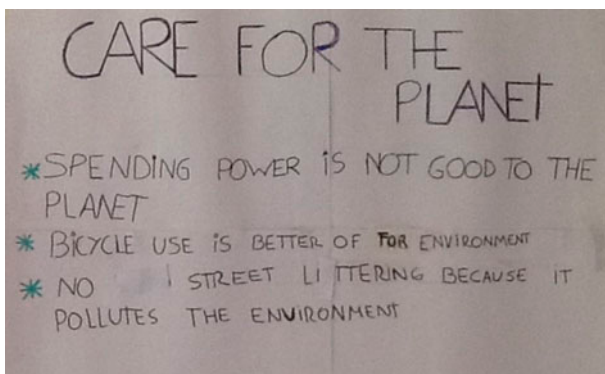 CARE FOR THE
PLANET
* SPENDING POWER iS NOT GOOD TO THE
PLANET
* BiCYCLE USE iS BETTER OF FOR ENVIRONMENT
* NO STREET LITTERING BECAUSE IT
POLLUTES THE ENVIRONMENT